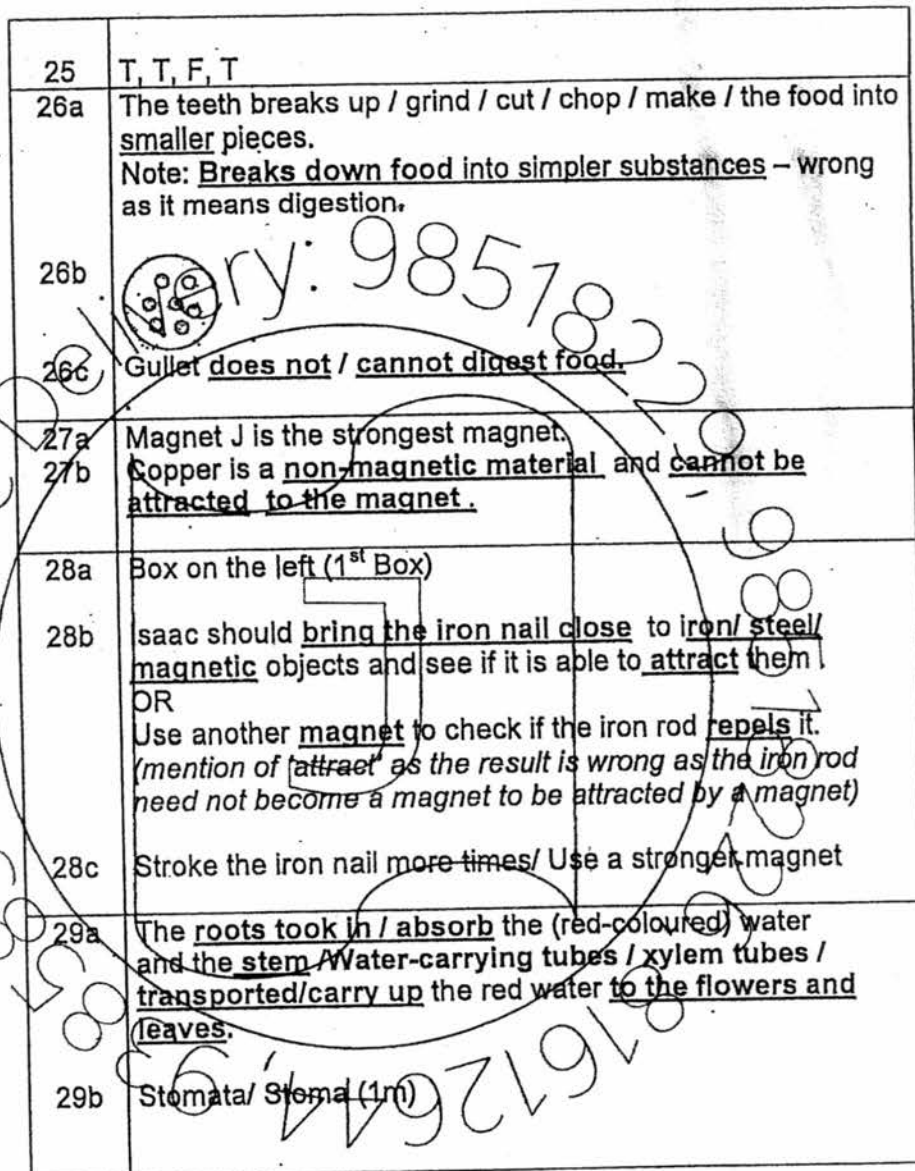 25 T, T, F, T
26a The teeth breaks up / grind / cut / chop / make / the food into
smaller pieces.
Note: Breaks down food into simpler substances – wrong
as it means digestion.
26b
26c Gullet does not / cannot digest food.
27a Magnet J is the strongest magnet.
27b Copper is a non-magnetic material and cannot be
attracted to the magnet .
28a Box on the left (1st Box)
28b Isaac should bring the iron nail close to iron/ steel/
magnetic objects and see if it is able to attract them .
OR
Use another magnet to check if the iron rod repels it.
(mention of 'attract' as the result is wrong as the iron rod
need not become a magnet to be attracted by a magnet)
28c Stroke the iron nail more times/ Use a stronger magnet
29a The roots took in / absorb the (red-coloured) water
and the stem /Water-carrying tubes / xylem tubes /
transported/carry up the red water to the flowers and
leaves.
29b Stomata/ Stoma (1m)